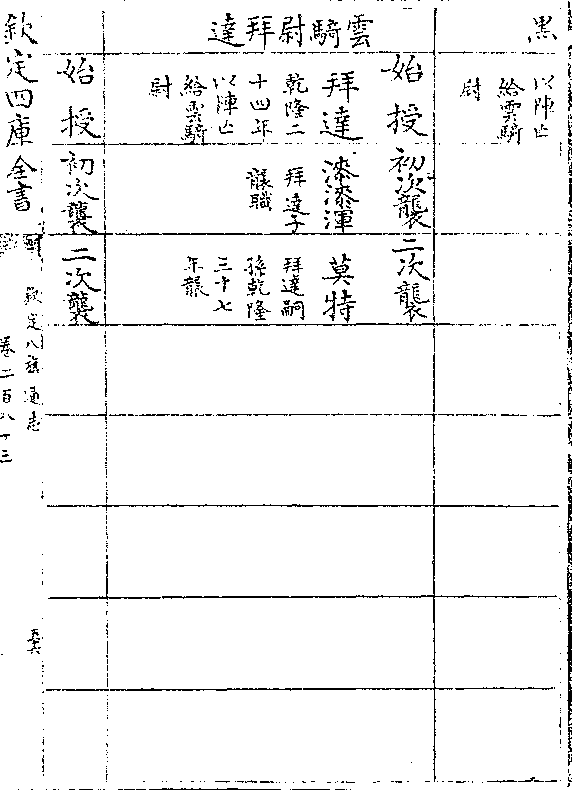 黑
以陣亡
給雲騎
尉
雲騎尉拜達
始授
初次襲
二次襲
拜達
乾隆二
十四年
以陣亡
給雲騎
尉
漆漆渾
拜達子
襲職
莫特
拜達嗣
孫乾隆
三十七
年襲
始授
初次襲
二次襲
欽定四庫全書
欽定八旗通志
卷二百八十三